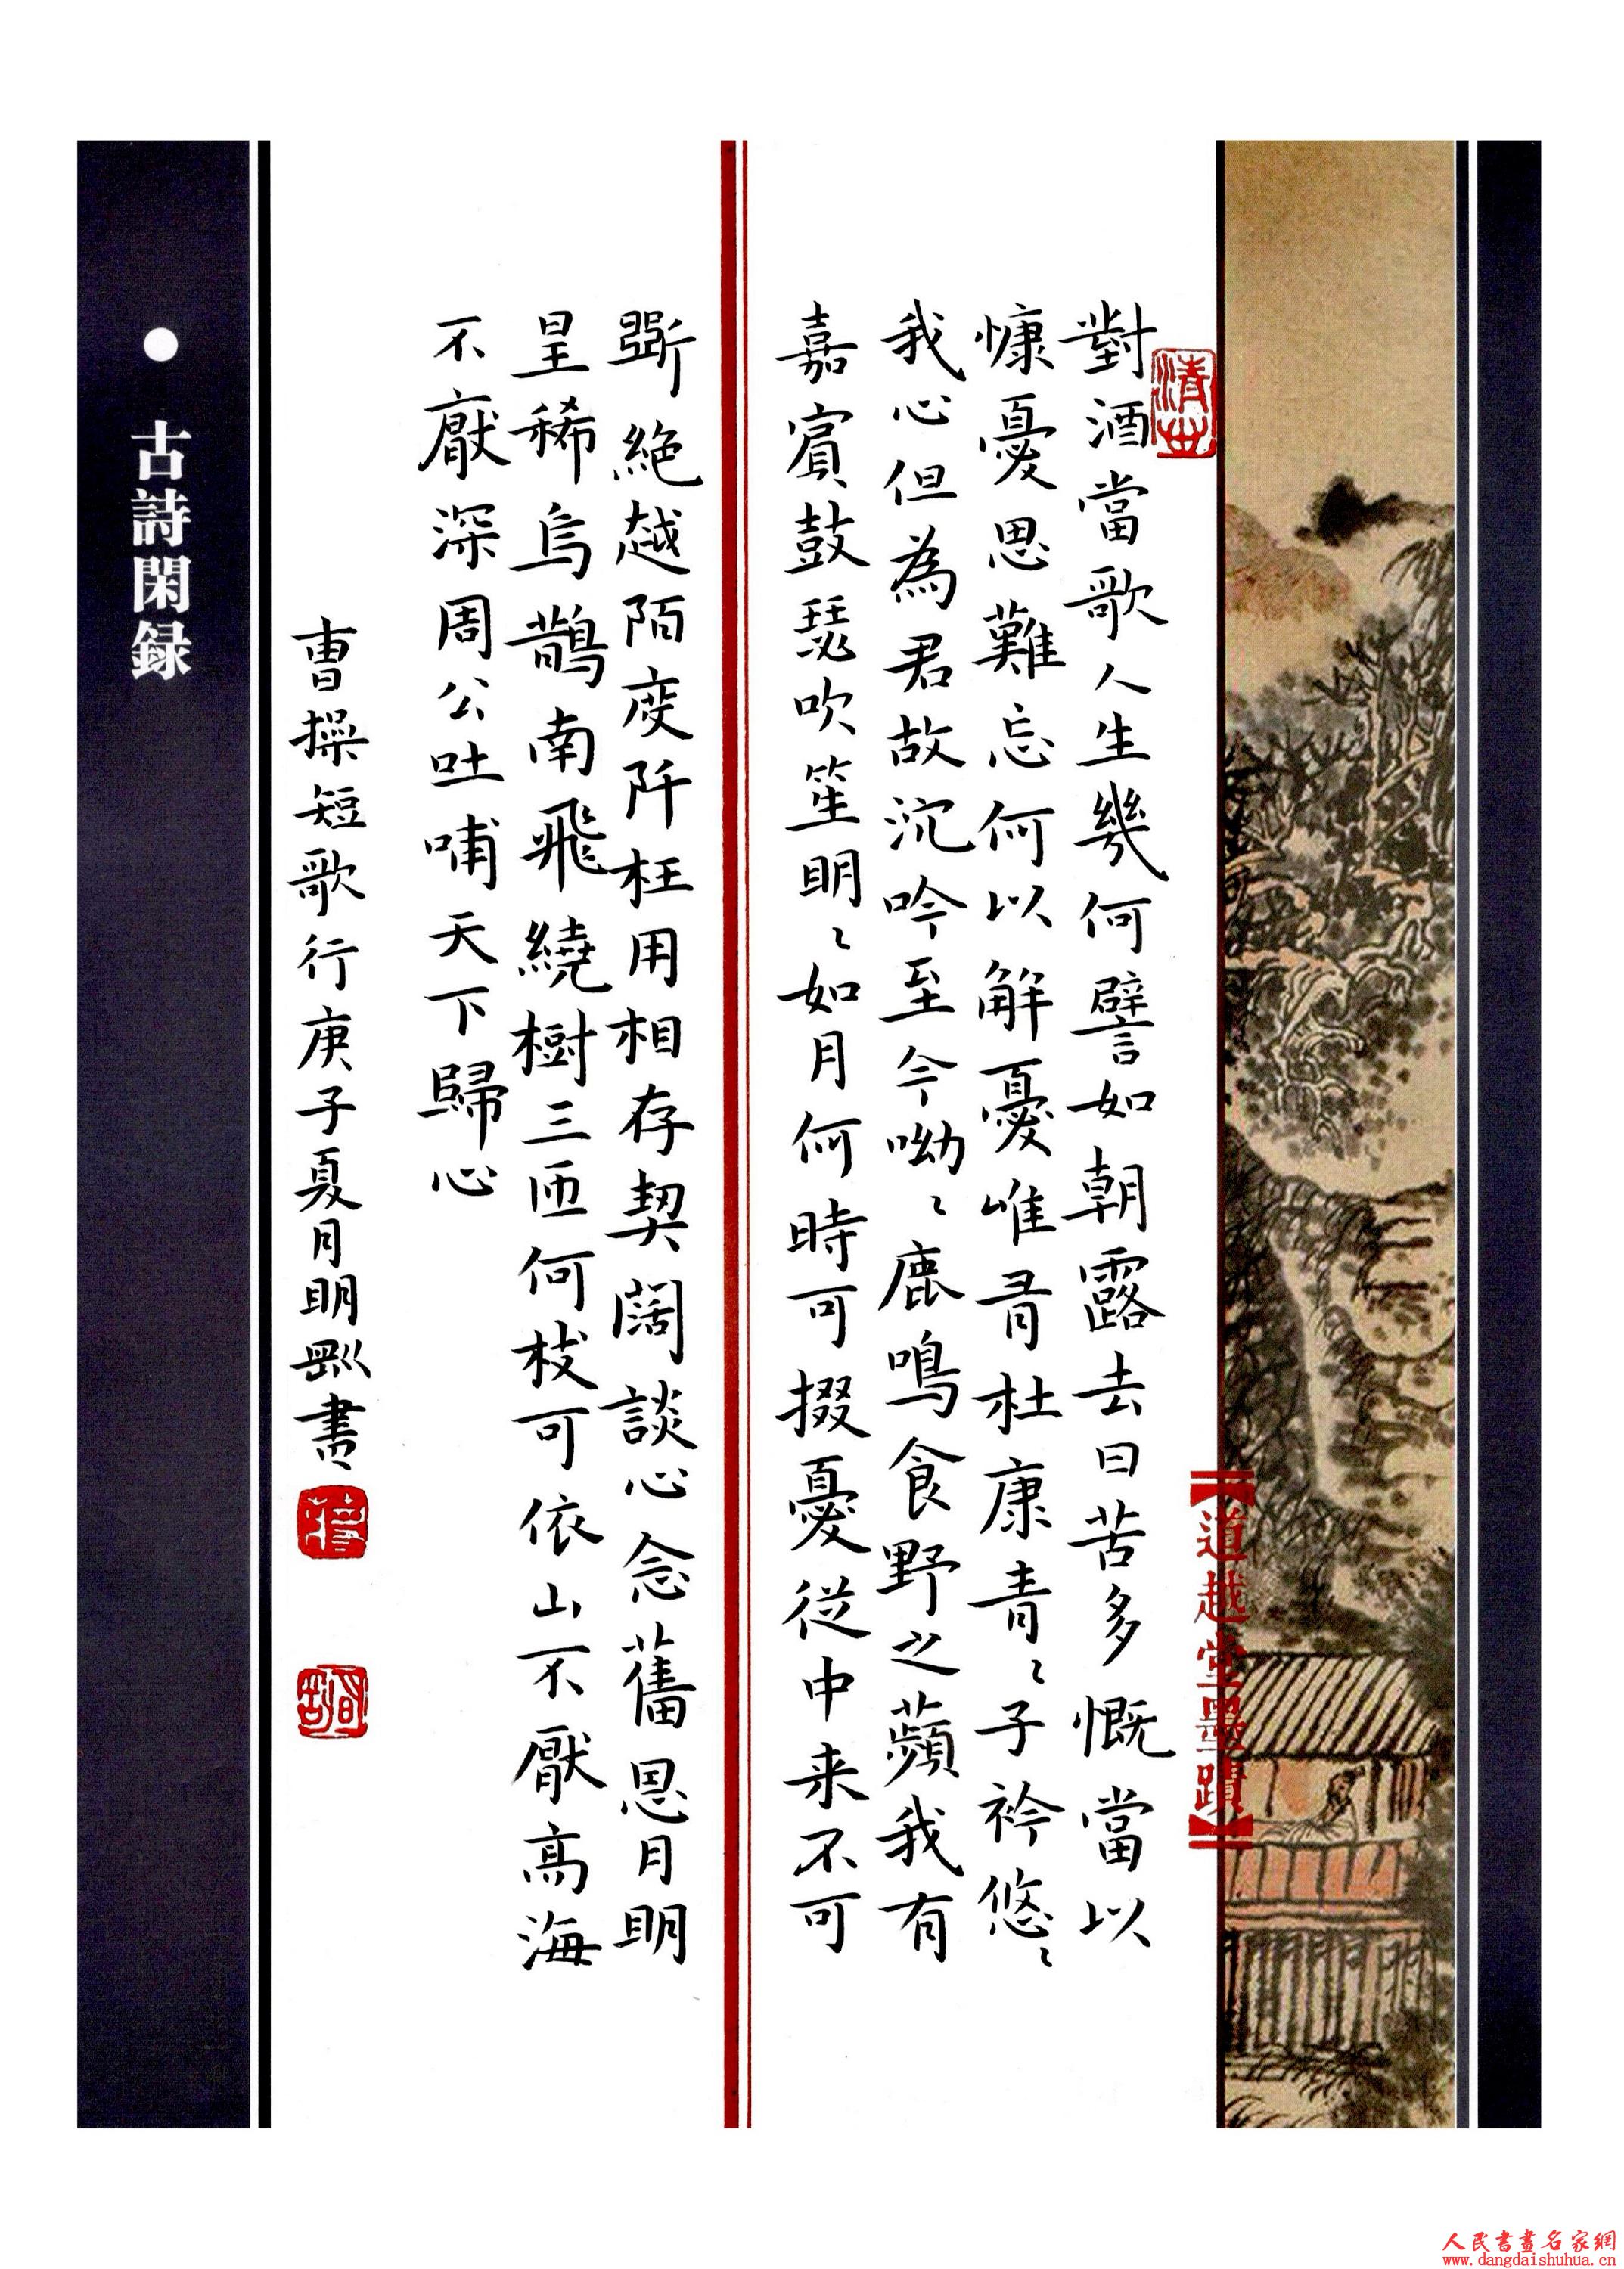 【道越堂墨蹟】
對酒當歌人生幾何譬如朝露去日苦多慨當以
慷憂思難忘何以解憂唯有杜康青〻子衿悠〻
我心但為君故沉吟至今呦〻鹿鳴食野之蘋我有
嘉賓鼓瑟吹笙明〻如月何時可掇憂從中来不可
斷絕越陌度阡枉用相存契闊談心念舊恩月明
星稀烏鵲南飛繞樹三匝何枝可依山不厭高海
不厭深周公吐哺天下歸心
曹操短歌行庚子夏月明書
● 古詩閑録
人民書畫名家網
www.dangdaishuhua.cn